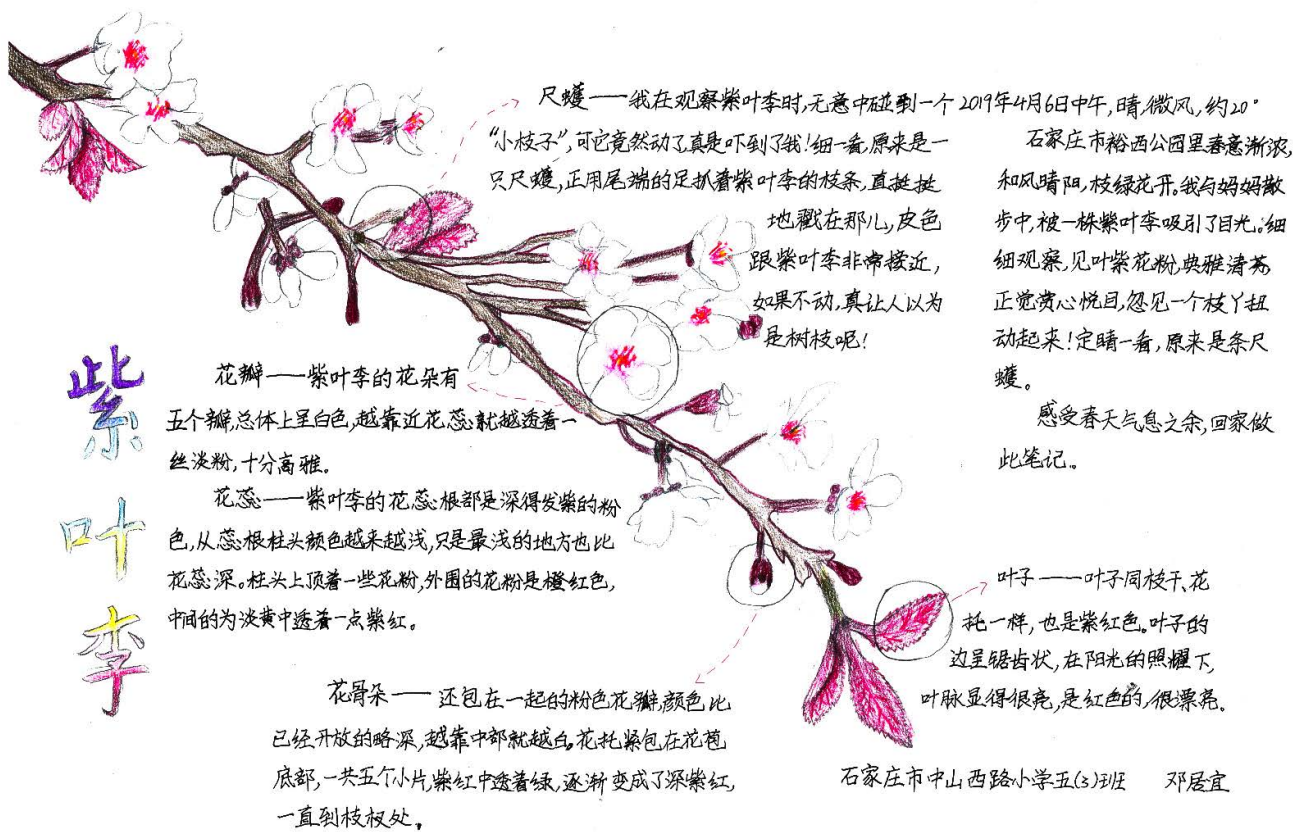 紫叶李
尺蠖——我在观察紫叶李时,无意中碰到一个
“小枝子”,可它竟然动了,真是吓到了我!细一看,原来是一
只尺蠖,正用尾端的足抓着紫叶李的枝条,直挺挺
地戳在那儿,皮色
跟紫叶李非常接近,
如果不动,真让人以为
是树枝呢!
2019年4月6日中午,晴,微风,约20°
石家庄市裕西公园里春意渐浓,
和风晴阳,枝绿花开,我与妈妈散
步中,被一株紫叶李吸引了目光。细
细观察,见叶紫花粉,典雅清芬,
正觉赏心悦目,忽见一个枝丫扭
动起来!定睛一看,原来是条尺
蠖。
感受春天气息之余,回家做
此笔记。
花瓣——紫叶李的花朵有
五个瓣,总体上呈白色,越靠近花蕊就越透着一
丝淡粉,十分高雅。
花蕊——紫叶李的花蕊根部是深得发紫的粉
色,从蕊根柱头颜色越来越浅,只是最浅的地方也比
花蕊深。柱头上顶着一些花粉,外围的花粉是橙红色,
中间的为淡黄中透着一点紫红。
花骨朵——还包在一起的粉色花瓣,颜色比
已经开放的略深,越靠中部就越白。花托紧包在花苞
底部,一共五个小片,紫红中透着绿,逐渐变成了深紫红,
一直到枝杈处。
叶子——叶子同枝干、花
托一样,也是紫红色。叶子的
边呈锯齿状,在阳光的照耀下,
叶脉显得很亮,是红色的,很漂亮。
石家庄市中山西路小学五(3)班 邓居宜